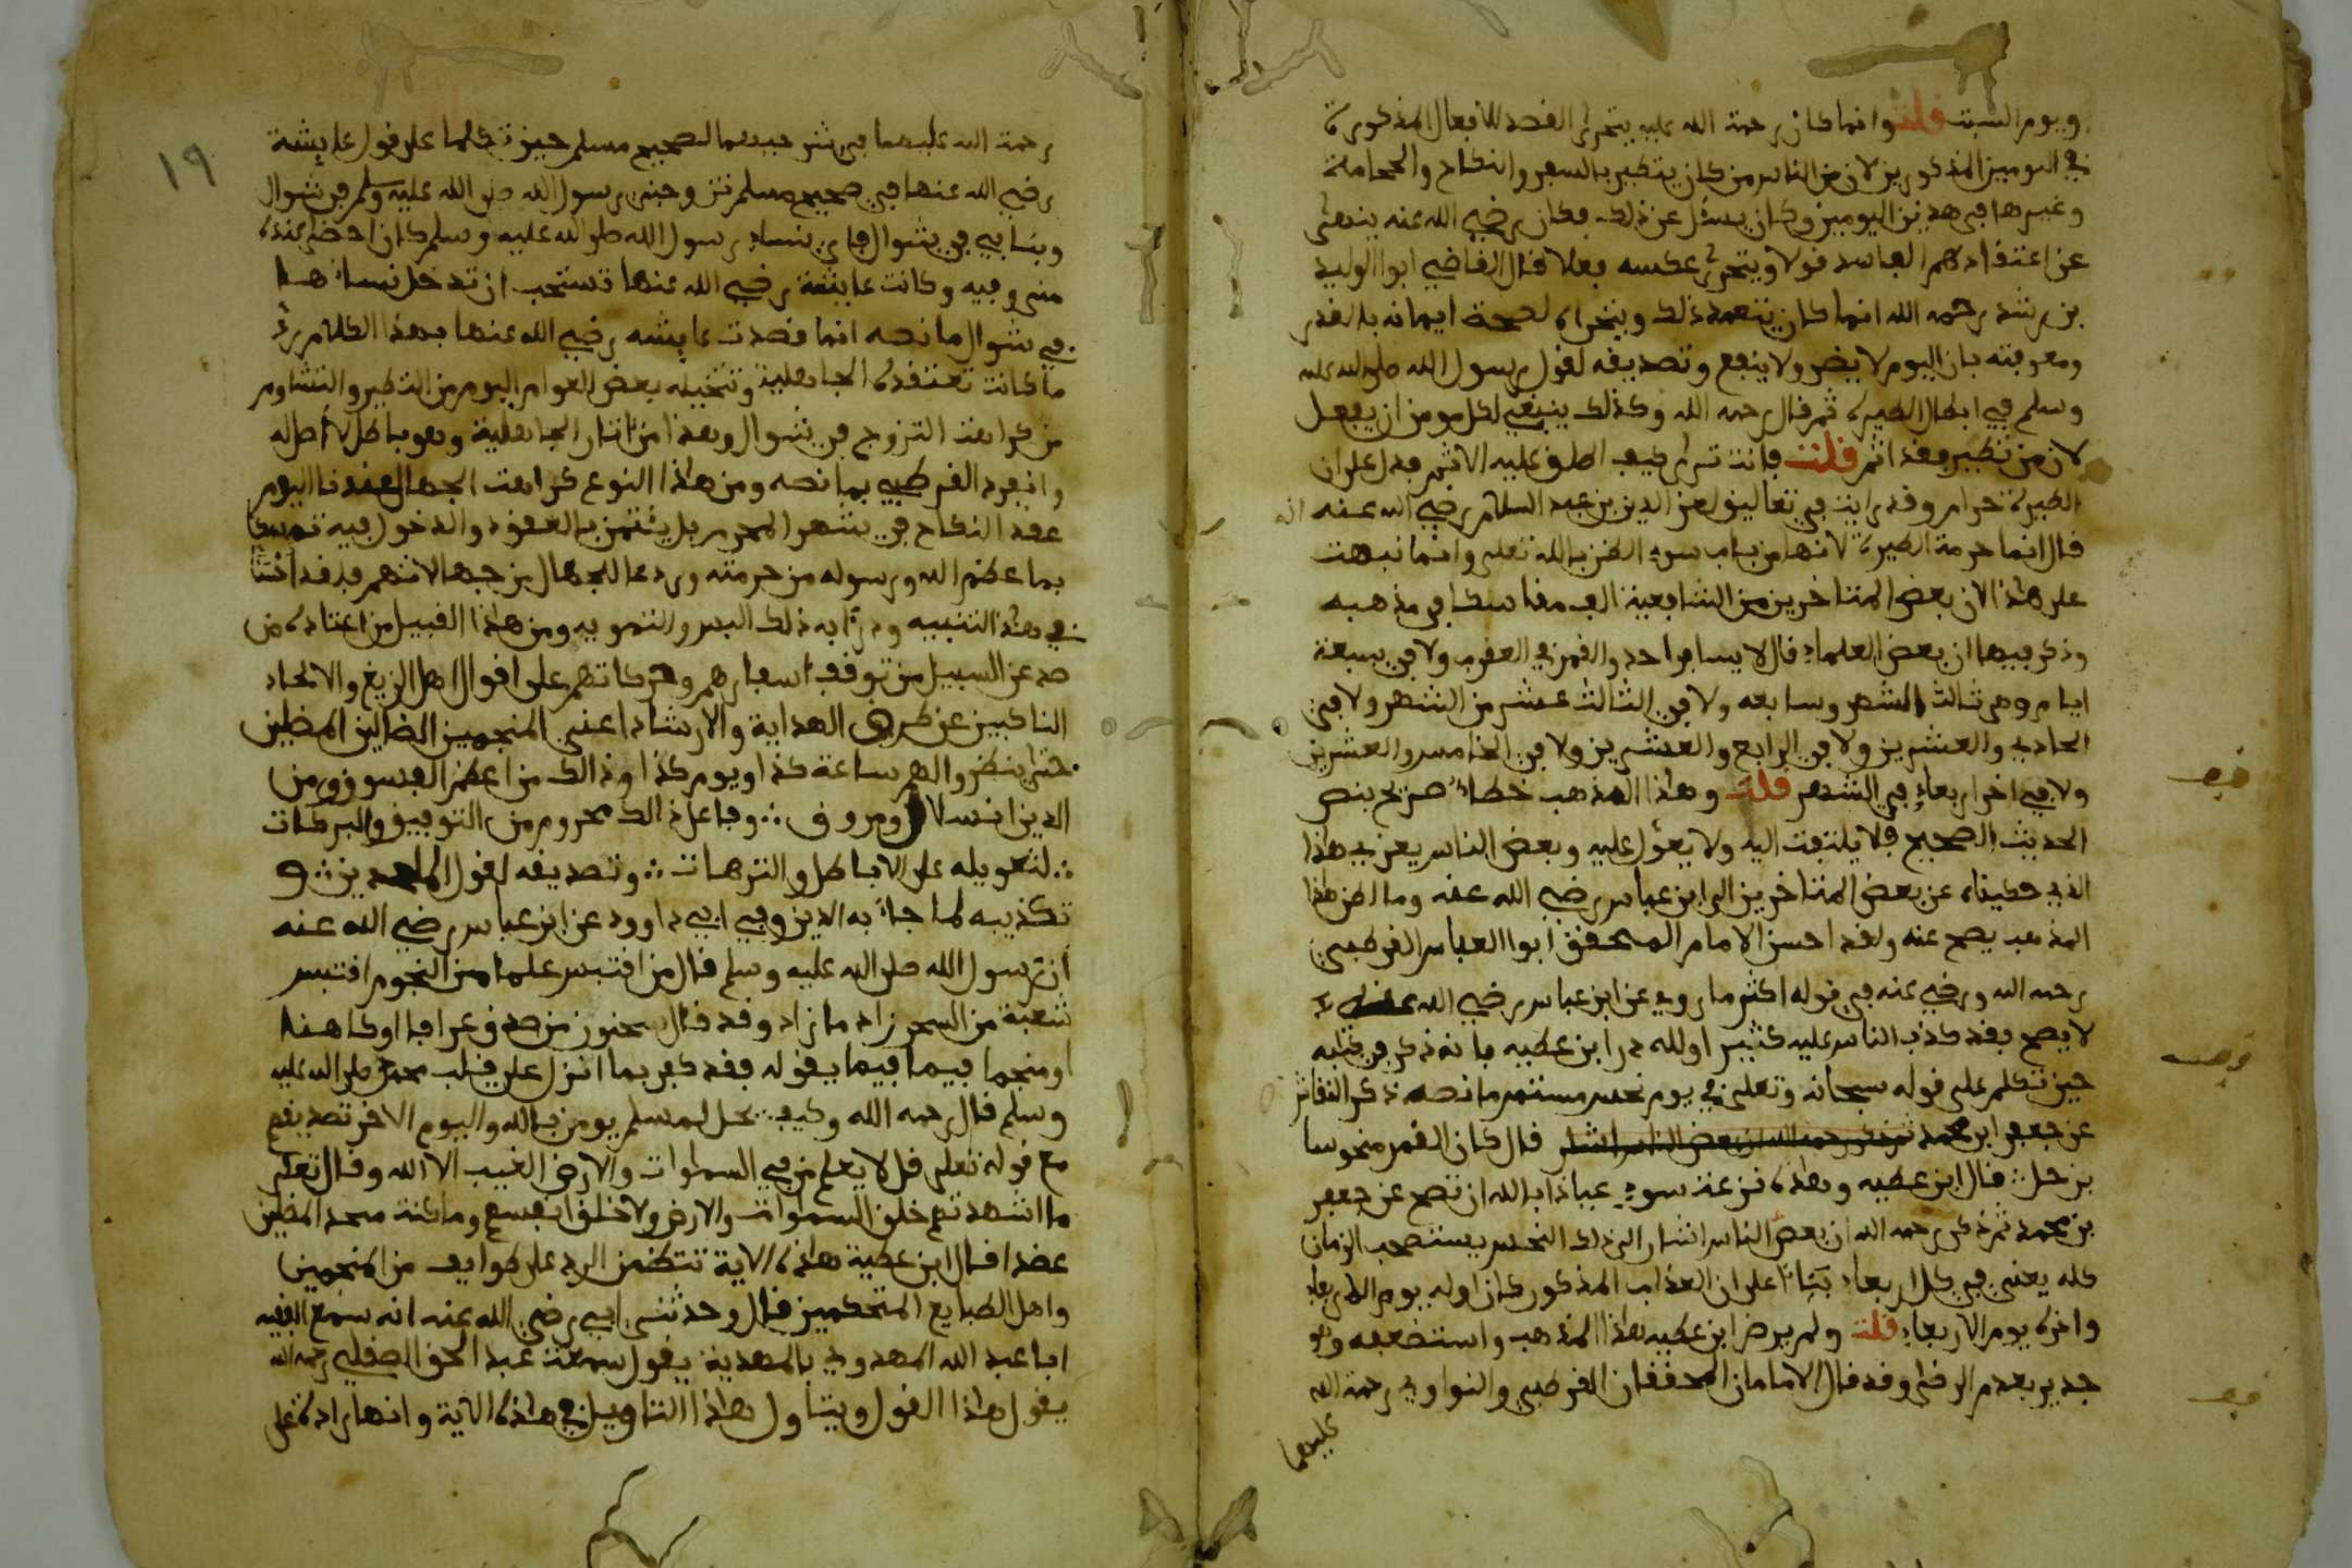 ويوم السبت قلت وانما كان رحمة الله عليه يتحرى القصد للافعال المذكورة
في اليومين المذكورين لان من الناس من كان يتطير بالسفر والنكاح والحجامة
وغيرها في هذين اليومين وكان يسئل عن ذلك فكان رضي الله عنه ينهى
عن اعتقادهم الفاسد قولا ويتحرى عكسه فعلا قال القاضي ابوا الوليد
بن رشد رحمه الله انما كان يتعمد ذلك ويتحراه لصحة ايمانه بالقدر
ومعرفته بان اليوم لا يضر ولا ينفع وتصديقه لقول رسول الله صلى الله عليه
وسلم في ابطال الطيرة ثم قال رحمه الله وكذلك ينبغي لكل مومن ان يفعل
لان من تطير فقد اثم قلت فانت ترى كيف اطلق عليه الاثم فدل على ان
الطيرة حرام وقد رايت في تعاليق لعز الدين بن عبد السلام رضي الله عنه انه
قال انما حرمة الطيرة لانها من باب سوء الظن بالله تعلى وانما نبهت
على هذا لان بعض المتاخرين من الشافعية الف مناسكا في مذهبه
وذكر فيها ان بعض العلماء قال لا يسافر احد والقمر في العقرب ولا في سبعة
ايام وهي ثالث الشهر وسابعه ولا في الثالث عشر من الشهر ولا في
الحادي والعشرين ولا في الرابع والعشرين ولا في الخامس والعشرين
ولا في اخر اربعاء في الشهر قلت وهذا المذهب خطاء صرح بنص
الحديث الصحيح فلا يلتفت اليه ولا يعول عليه وبعض الناس يعزي هذا
الذي حكيناه عن بعض المتاخرين الى ابن عباس رضي الله عنه وما اظن هذا
المذهب يصح عنه ولقد احسن الامام المحقق ابوا العباس القرطبي
رحمه الله ورضي عنه في قوله اكثر ما روي عن ابن عباس رضي الله عنه لا
لا يصح فقد كذب الناس عليه كثيرا ولله در ابن عطيه فانه ذكر في كتابه
حين تكلم على قوله سبحانه وتعلى في يوم نحس مستمر ما نصه ذكر النقاش
عن جعفر ابن محمد ثم ذكر رحمه الله ان بعض الناس اشار قال كان القمر منحوسا
بزحل قال ابن عطيه وهذه نزعة سوء عياذا بالله ان تصح عن جعفر
بن محمد ثم ذكر رحمه الله ان بعض الناس اشار الى ذلك النحس يستصحب الزمان
كله يعني في كل اربعاء بناء على ان العذاب المذكور كان اوله يوم الاربعاء
واخره يوم الاربعاء قلت ولم يرض ابن عطيه هذا المذهب واستضعفه وهو
جدير بعدم الرضى وقد قال الامامان المحققان القرطبي والنواوي رحمة الله
عليهما
١٩
رحمة الله عليهما في شرحيهما لصحيح مسلم حين تكلما على قول عايشة
رضي الله عنها في صحيح مسلم تزوجني رسول الله صلى الله عليه وسلم في شوال
وبنا بي في شوال فاي نساء رسول الله صلى الله عليه وسلم كان احضى عنده
مني وفيه وكانت عايشة رضي الله عنها تستحب ان تدخل نساءها
في شوال ما نصه انما قصدت عايشه رضي الله عنها بهذا الكلام رد
ما كانت تعتقده الجاهلية وتتخيله بعض العوام اليوم من التطير والتشاوم
من كراهت التزوج في شوال وهذا من اثار الجاهلية وهو باطل لا اصل له
وانفرد القرطبي بما نصه ومن هذا النوع كراهت الجهال عندنا اليوم
عقد النكاح في شهر المحرم بل يتيمن بالعقود والدخول فيه تمسكا
بما عظم الله ورسوله من حرمته وردعا للجهال
في هذا التنبيه ودرا به ذلك اللبس والتمويه ومن هذا القبيل من اعتاده من
صد عن السبيل من توقف اسفارهم وحركاتهم على اقوال اهل الزيغ والالحاد
الناكبين عن طريق الهداية والارشاد اعني المنجمين الضالين المضلين
حتى ينظروا لهم ساعة كذا ويوم كذا وذالك من اعظم الفسوق ومن
الدين انسلال ومروق وفاعل ذالك محروم من التوفيق والبركات
لتعويله على الاباطل والترهات وتصديقه لقول الملحدين و
تكذيبه لما جاء به الدين وفي ابي داوود عن ابن عباس رضي الله عنه
ان رسول الله صلى الله عليه وسلم قال من اقتبس علما من النجوم اقتبس
شعبة من السحر زاد ما زاد وقد قال سحنون من صدق عرافا او كاهنا
او منجما فيما فيما يقوله فقد كفر بما انزل على قلب محمد صلى الله عليه
وسلم قال رحمه الله وكيف يحل لمسلم يومن بالله واليوم الاخر تصديقهم
مع قوله تعلى قل لا يعلم من في السموات والارض الغيب الا الله وقال تعلى
ما اشهدتهم خلق السموات والارض ولا خلق انفسهم وما كنت متخذ المضلين
عضدا قال ابن عطية هذه الاية تتضمن الرد على طوايف من المنجمين
واهل الطبايع المتحكمين قال وحدثني ابي رضي الله عنه انه سمع الفقيه
ابا عبد الله المهدوي بالمهدية يقول سمعت عبد الحق الصقلي رحمه الله
يقول هذا القول ويتاول هذا التاويل في هذه الاية وانها رادة على